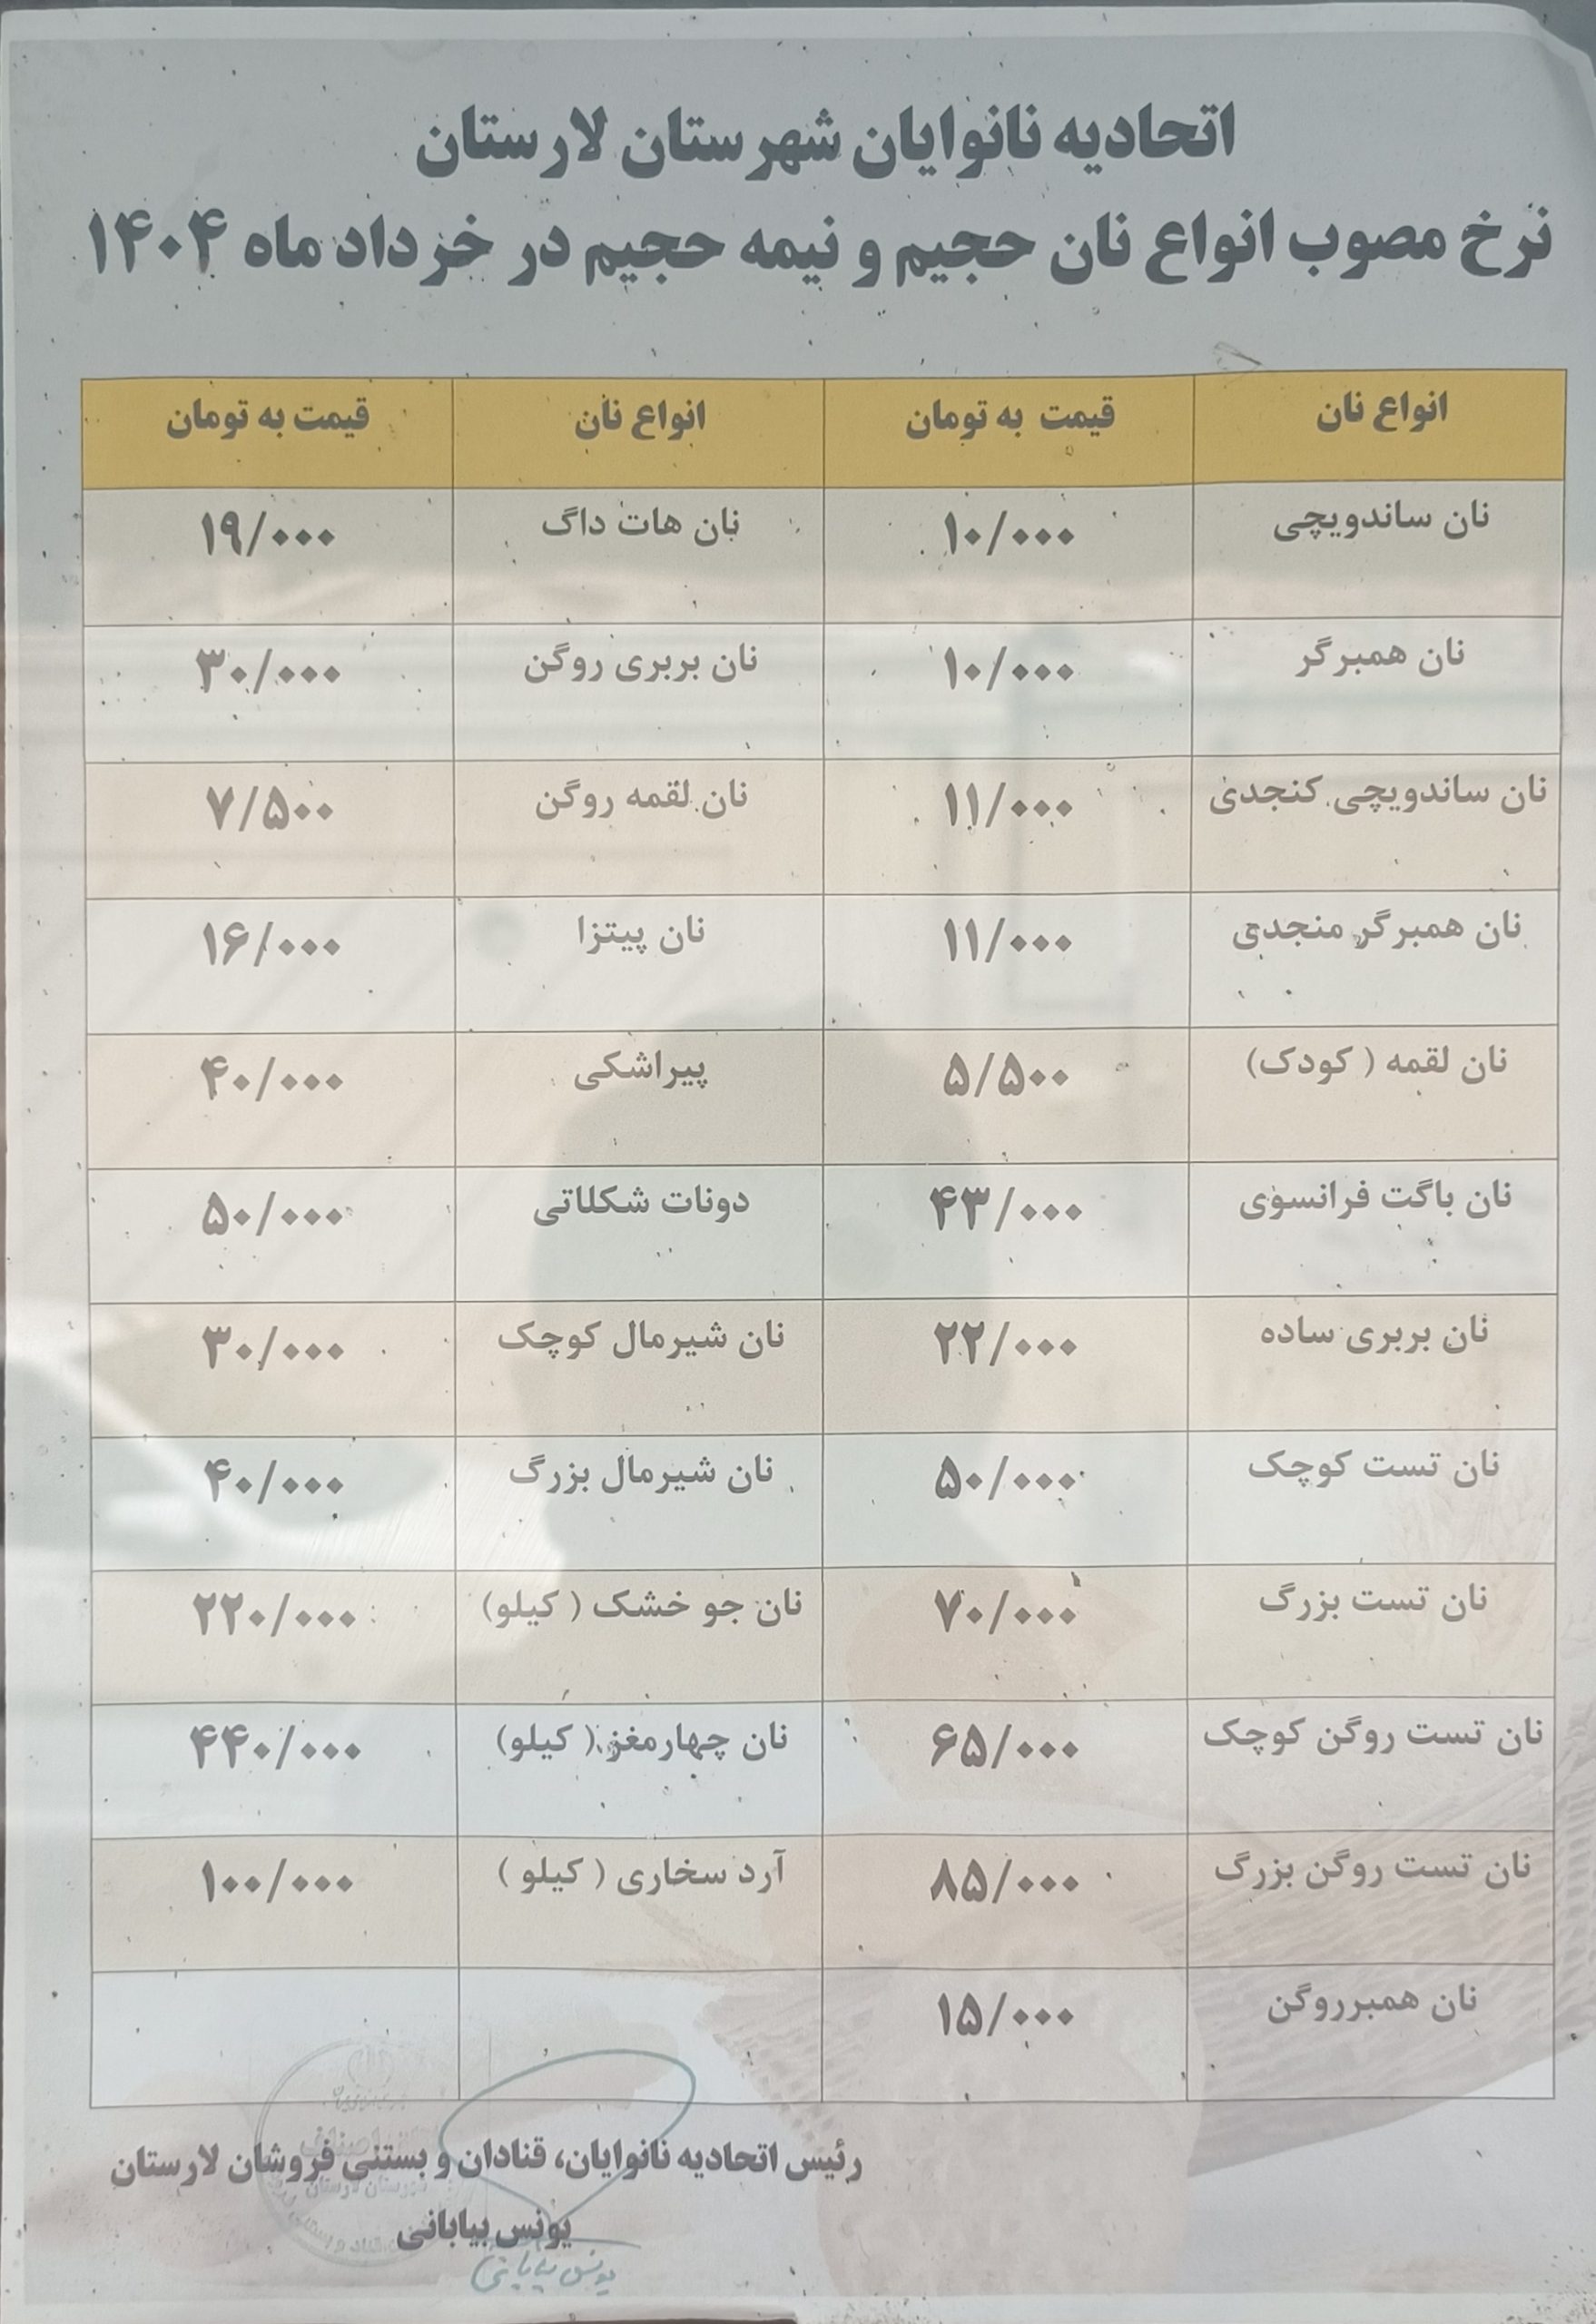 اتحادیه نانوایان شهرستان لارستان
نرخ مصوب انواع نان حجیم و نیمه حجیم در خرداد ماه ۱۴۰۴
انواع نان قیمت به تومان انواع نان قیمت به تومان
نان ساندویچی ۱۰/۰۰۰ نان هات داگ ۱۹/۰۰۰
نان همبرگر ۱۰/۰۰۰ نان بربری روگن ۳۰/۰۰۰
نان ساندویچی کنجدی ۱۱/۰۰۰ نان لقمه روگن ۷/۵۰۰
نان همبرگر منجدی ۱۱/۰۰۰ نان پیتزا ۱۶/۰۰۰
نان لقمه ( کودک) ۵/۵۰۰ پیراشکی ۴۰/۰۰۰
نان باگت فرانسوی ۴۳/۰۰۰ دونات شکلاتی ۵۰/۰۰۰
نان بربری ساده ۲۲/۰۰۰ نان شیرمال کوچک ۳۰/۰۰۰
نان تست کوچک ۵۰/۰۰۰ نان شیرمال بزرگ ۴۰/۰۰۰
نان تست بزرگ ۷۰/۰۰۰ نان جو خشک ( کیلو) ۲۲۰/۰۰۰
نان تست روگن کوچک ۶۵/۰۰۰ نان چهارمغز ( کیلو) ۴۴۰/۰۰۰
نان تست روگن بزرگ ۸۵/۰۰۰ آرد سخاری ( کیلو ) ۱۰۰/۰۰۰
نان همبرروگن ۱۵/۰۰۰
رئیس اتحادیه نانوایان، قنادان و بستنی فروشان لارستان
یونس بیابانی
یونس بیابانی